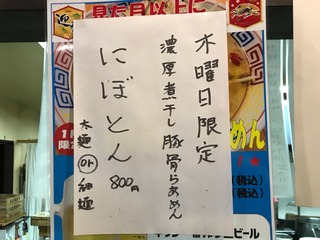 木曜日限定
濃厚煮干し豚骨らあめん
にぼとん 800円
太麺 or 細麺
見た目以上に
めん
(税込)
(税込)